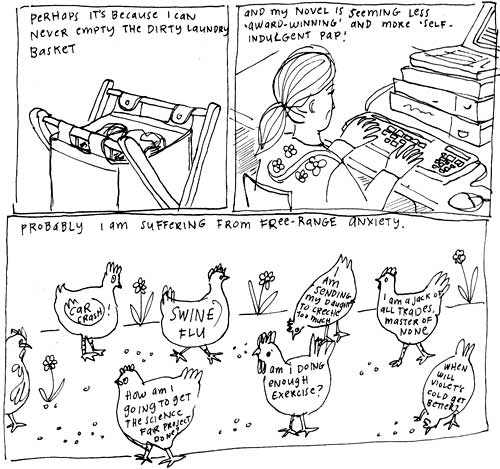 PERHAPS IT'S BECAUSE I CAN
NEVER EMPTY THE DIRTY LAUNDRY
BASKET
AND MY NOVEL IS SEEMING LESS
'AWARD-WINNING' AND MORE 'SELF-
INDULGENT PAP!'
PROBABLY I AM SUFFERING FROM FREE-RANGE ANXIETY.
CAR
CRASH!
SWINE
FLU
AM
I
SENDING
MY DAUGHTER
TO CRECHE
TOO MUCH
I am a JACK OF
ALL TRADES,
MASTER OF
NONE
HOW am I
GOING TO GET
THE SCIENCE
FAIR PROJECT
DONE?
am I DOING
ENOUGH
EXERCISE?
WHEN
WILL
VIOLET'S
COLD GET
BETTER?